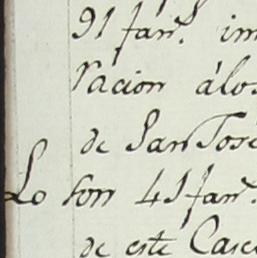 91 Janr. im
racion álos
de San José
Lo son 41 Janr.
de este Case